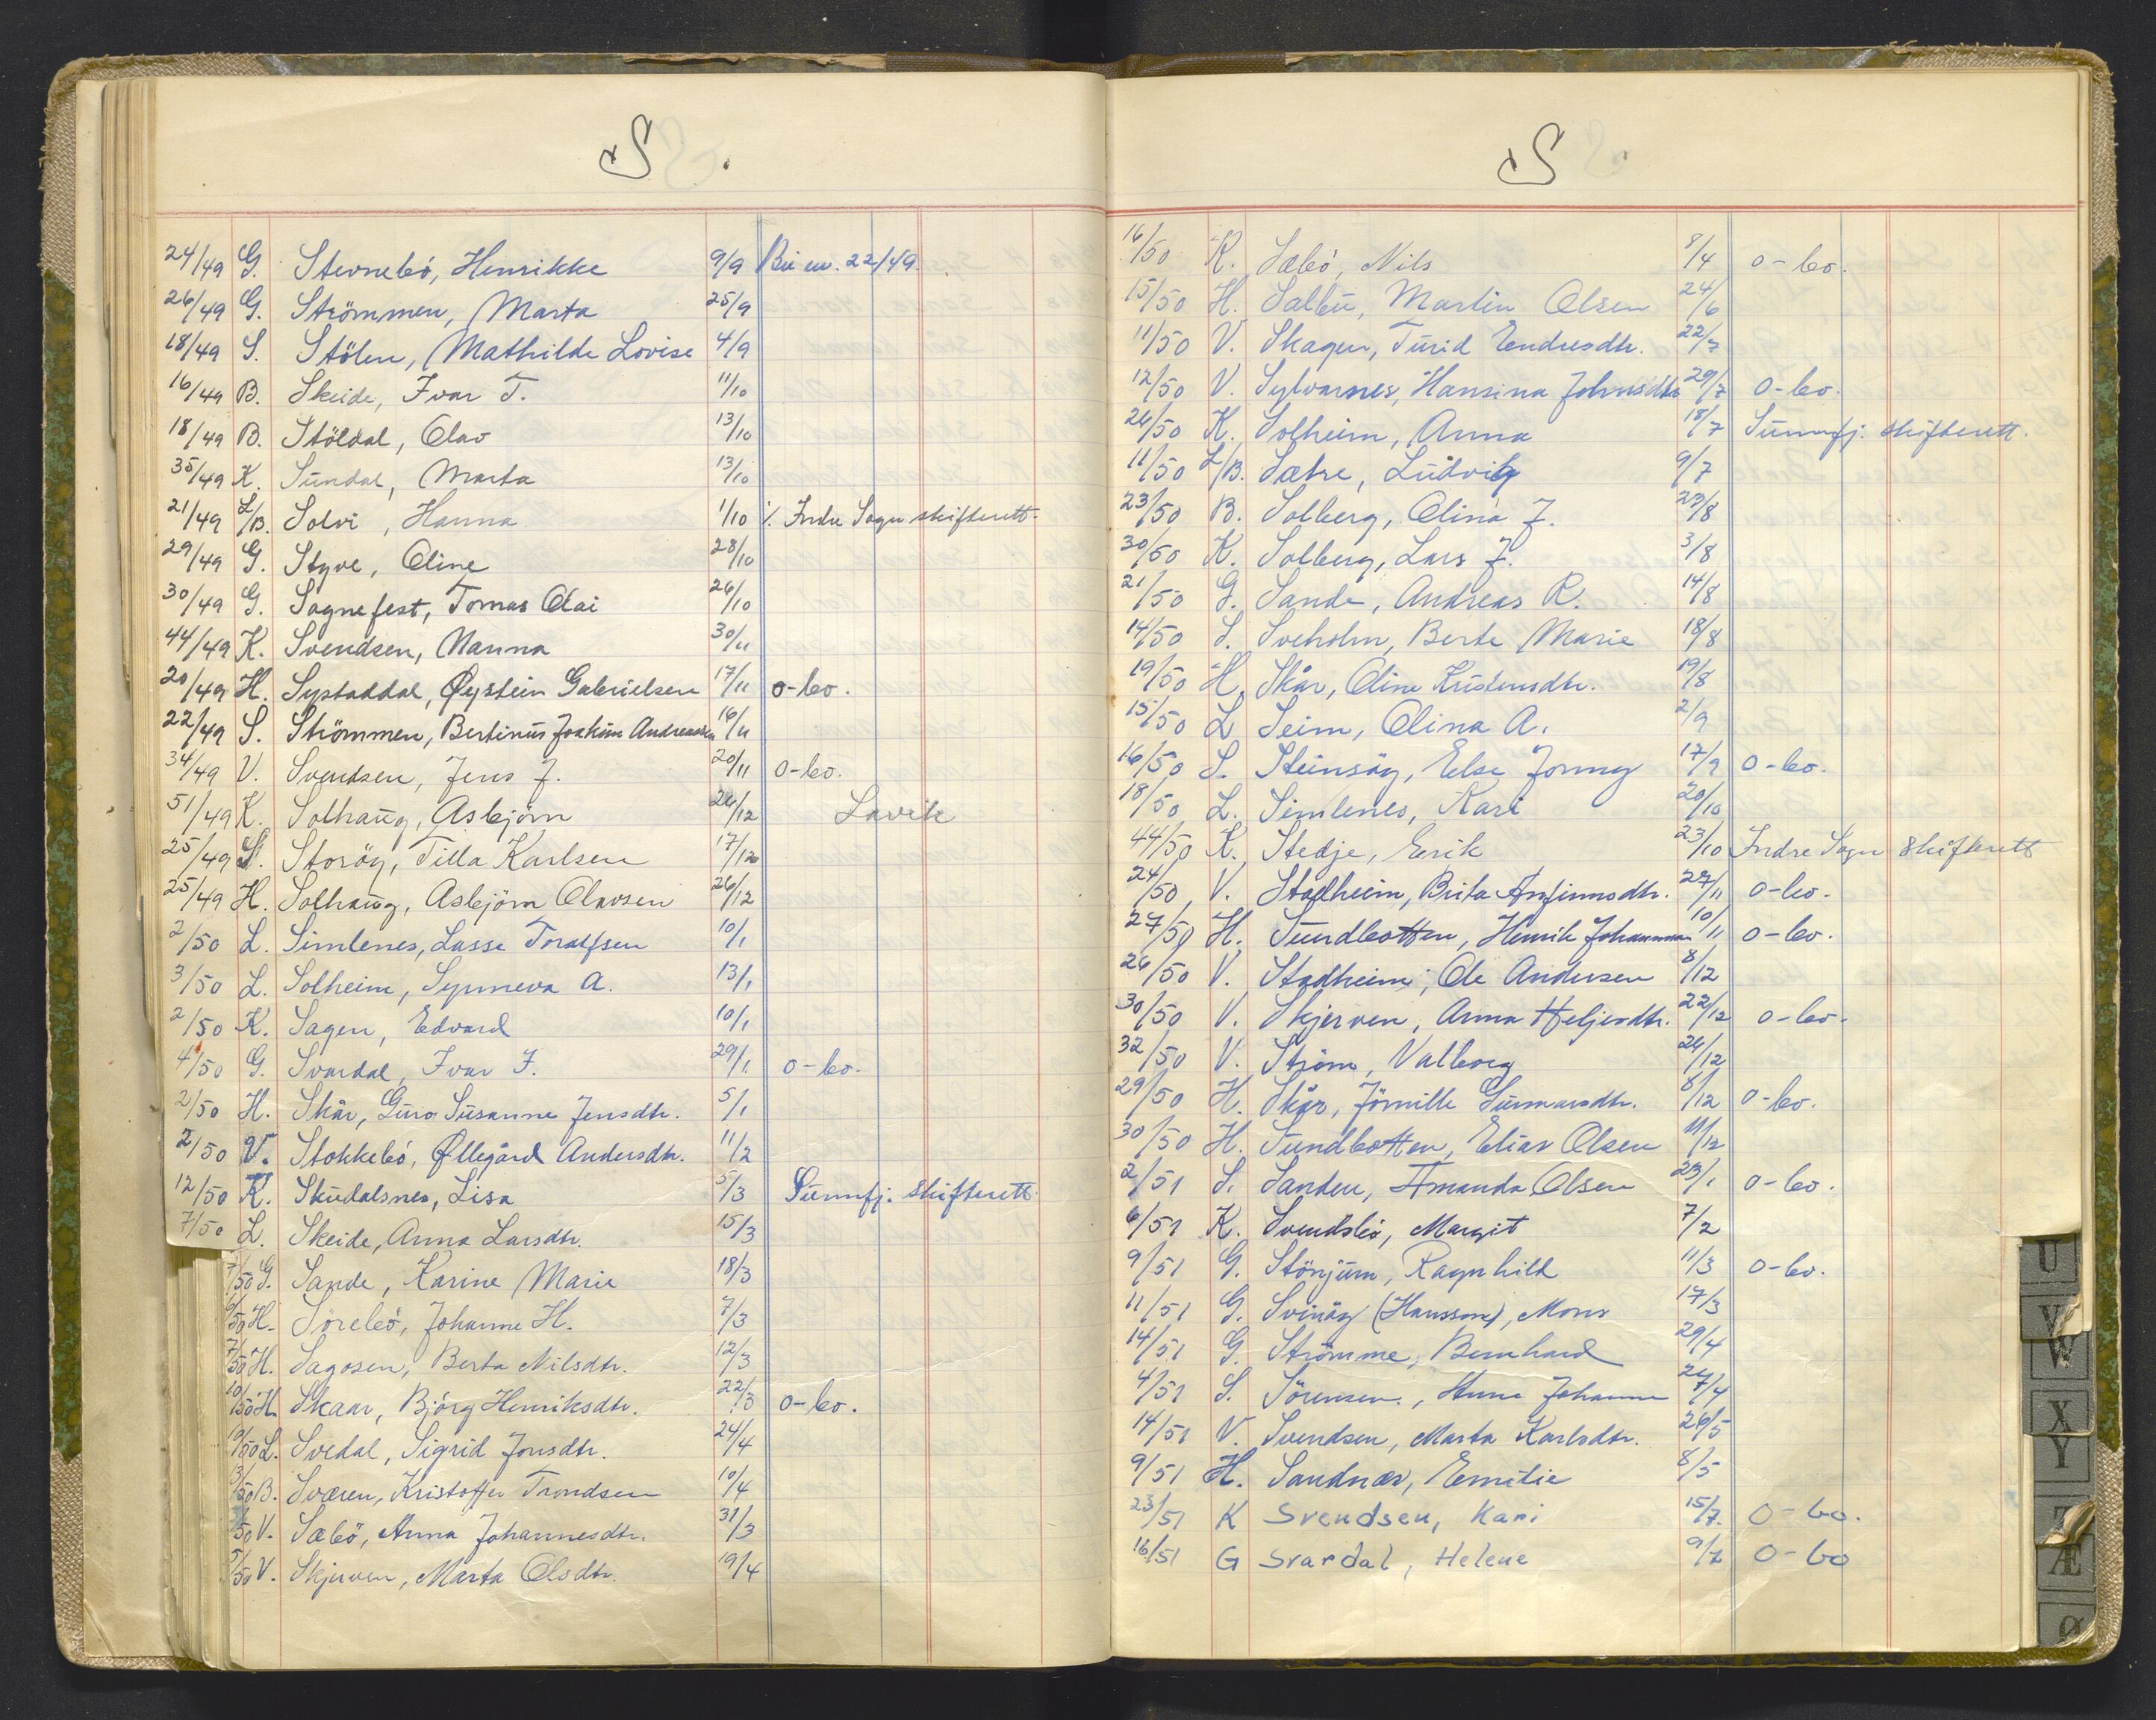 S.
24/49 G. Stevnebö, Henrikke 9/9 Bu nr. 22/49.
26/49 G. Strömmen, Marta 25/9
18/49 S. Stölen, Mathilde Lovise 4/9
16/49 B. Skeide, Ivar T. 11/10
18/49 B. Stöldal, Olav 13/10
35/49 K. Sundal, Marta 13/10
21/49 L/B. Solvi, Hanna 1/10 ⁒ Indre Sogn skifterett.
29/49 G. Styve, Oline 28/10
30/49 G. Sognefest, Tomas Olai 26/10
44/49 K. Svendsen, Nanna 30/11
20/49 H. Systaddal, Øystein Gabrielsen 17/11 0-bo.
22/49 S. Strömmen, Bertinus Joakim Andreassen 16/11
34/49 V. Svendsen, Jens J. 20/11 0-bo.
51/49 K. Solhaug, Asbjörn 26/12 Lavik
25/49 S. Storöy, Tilla Karlsen 17/12
25/49 H. Solhaug, Asbjörn Olavsen 26/12
2/50 L. Simlenes, Lasse Toralfsen 10/1
3/50 L. Solheim, Synneva A. 13/1
2/50 K. Sagen, Edvard 10/1
4/50 G. Svardal, Ivar J. 29/1 0-bo.
2/50 H. Skår, Guro Susanne Jensdtr. 5/1
2/50 V. Stokkebö, Øllegård Andersdtr. 11/2
12/50 K. Skudalsnes, Lisa 5/3 Sunnfj. skifterett
7/50 L. Skeide, Anna Larsdtr. 15/3
7/50 G. Sande, Karine Marie 18/3
6/50 H. Sörebö, Johanne H. 7/3
7/50 H. Sagosen, Berta Nilsdtr. 12/3
10/50 H. Skaar, Björg Henriksdtr. 22/3 0-bo.
10/50 L. Svedal, Sigrid Jonsdtr. 24/4
3/50 B. Sværen, Kristoffer Trondsen 10/4
50 V. Sæbö, Anna Johannesdtr. 31/3
5/50 V. Skjerven, Marta Olsdtr. 19/4
S
16/50 K. Sæbö, Nils 8/4 0-bo.
15/50 H. Salbu, Martin Olsen 24/6
11/50 V. Skagen, Turid Endresdtr. 22/7
12/50 V. Sylvarnes, Hansina Johnsdtr 29/7 0-bo.
26/50 K. Solheim, Anna 18/7 Sunnfj. skifterett.
11/50 L/B. Sætre, Ludvig 9/7
23/50 B. Solberg, Olina J. 23/8
30/50 K. Solberg, Lars J. 3/8
21/50 G. Sande, Andreas R. 14/8
14/50 S. Sveholm, Berte Marie 18/8
19/50 H. Skår, Oline Kristensdtr. 19/8
15/50 L Seim, Olina A. 2/9
16/50 S. Steinsöy, Else Jonny 17/9 0-bo.
18/50 L. Simlenes, Kari 20/10
44/50 K. Stedje, Eirik 23/10 Indre Sogn skifterett
24/50 V. Stadheim, Brita Anfinnsdtr. 27/11 0-bo.
27/50 H. Sundbotten, Henrik Johannessen 10/11 0-bo.
26/50 V. Stadheim, Ole Andersen 8/12
30/50 V. Skjerven, Anna Heljesdtr. 22/12 0-bo.
32/50 V. Ström, Valborg 26/12
29/50 H. Skår, Jörnille Gunnarsdtr. 8/12 0-bo.
30/50 H. Sundbotten, Elias Olsen 11/12
2/51 S. Sanden, Amanda Olsen 23/1 0-bo.
6/51 K. Svendsbö, Margit 7/2
9/51 G. Stönjum, Ragnhild 11/3 0-bo.
11/51 G. Svinöy (Hansson), Mons 17/3
14/51 G. Strömme, Bernhard 29/4
4/51 S. Sörensen, Anna Johanne 24/4
14/51 V. Svendsen, Marta Karlsdtr. 26/5
9/51 H. Sandnæs, Emilie 8/5
23/51 K Svendsen, Kari 15/7. 0-bo.
16/51 G Svardal, Helene 9/7 0-bo
U
V
W
X
Y
Z
Æ
Ø